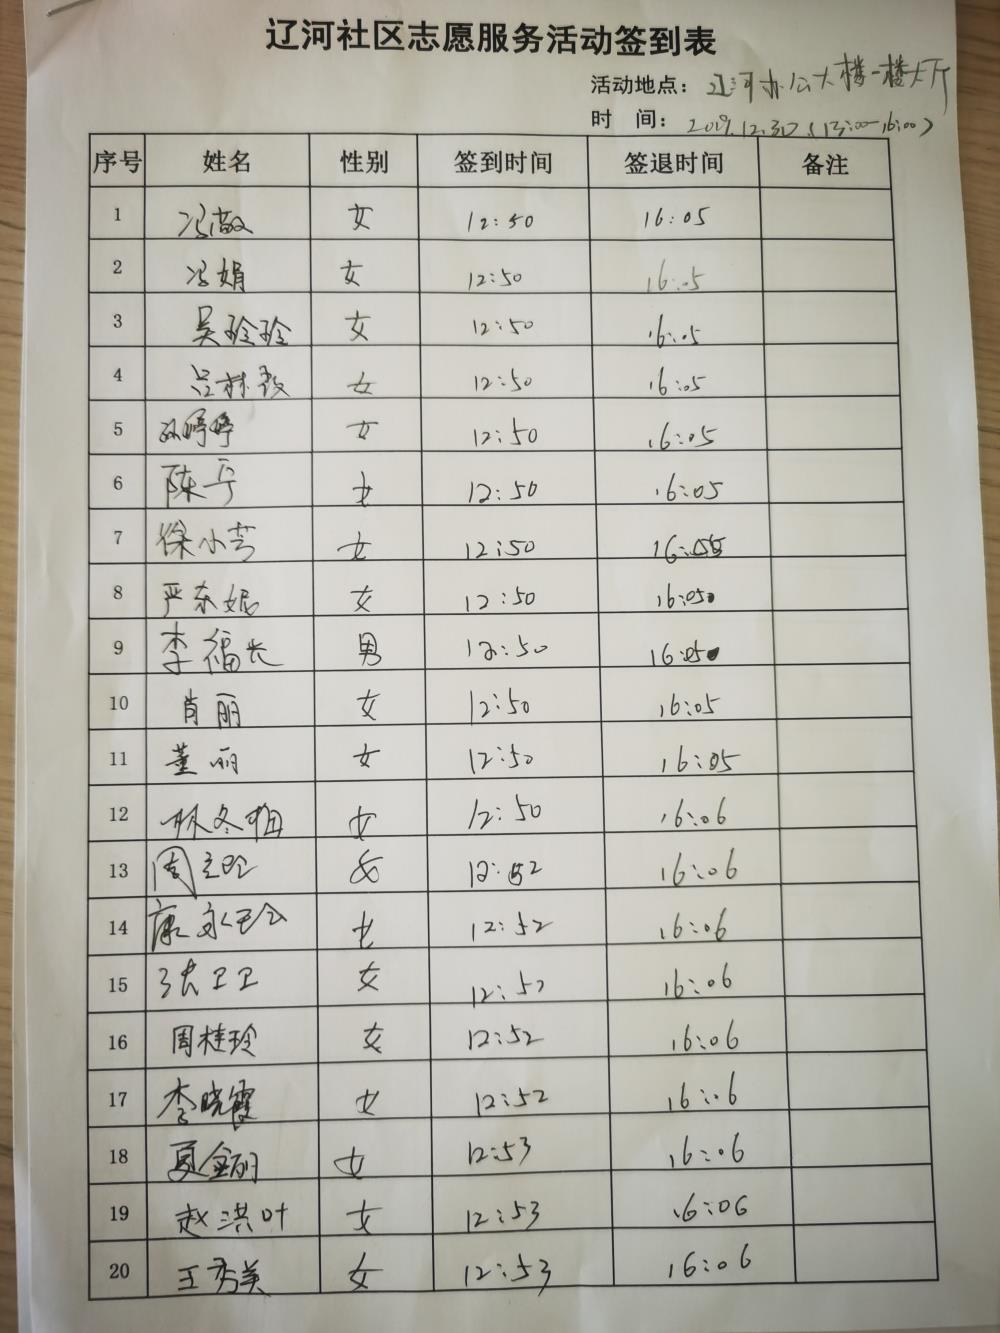 辽河社区志愿服务活动签到表
活动地点：辽河办公大楼一楼大厅
时 间：2019.12.30（13:00-16:00）
序号 姓名 性别 签到时间 签退时间 备注
1 冯敏 女 12:50 16:05
2 冯娟 女 12:50 16:05
3 吴玲玲 女 12:50 16:05
4 吕林 女 12:50 16:05
5 孙婷婷 女 12:50 16:05
6 陈 女 12:50 16:05
7 徐小芳 女 12:50 16:05
8 严东妮 女 12:50 16:05
9 李福长 男 12:50 16:05
10 肖丽 女 12:50 16:05
11 董丽 女 12:50 16:05
12 林冬梅 女 12:50 16:06
13 周 女 12:52 16:06
14 康永玲 女 12:52 16:06
15 张卫卫 女 12:52 16:06
16 周桂玲 女 12:52 16:06
17 李晓霞 女 12:52 16:06
18 夏金丽 女 12:53 16:06
19 赵洪叶 女 12:53 16:06
20 王秀美 女 12:53 16:06